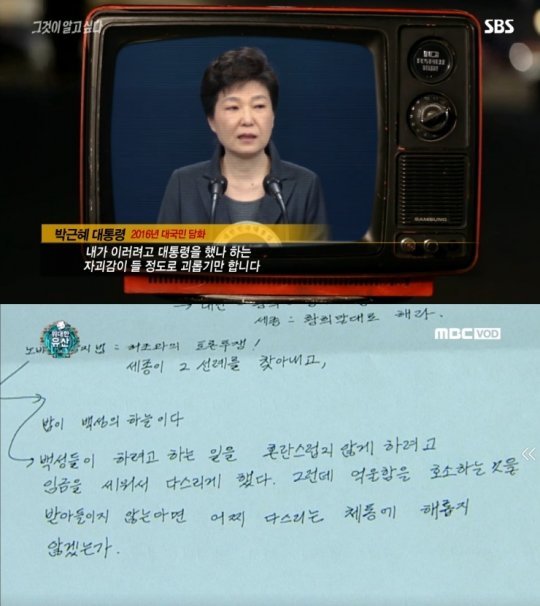 그것이 알고 싶다
SBS
SAMSUNG
박근혜 대통령 2016년 대국민 담화
내가 이러려고 대통령을 했나 하는
자괴감이 들 정도로 괴롭기만 합니다
세종 = 황희 말대로 해라.
위대한
유산
MBC VOD
노비
법 = 허조와의 토론투쟁!
세종이 그 선례를 찾아내고,
밥이 백성의 하늘이다
백성들이 하려고 하는 일을 혼란스럽지 않게 하려고
임금을 세워서 다스리게 했다. 그런데 억울함을 호소하는 것을
받아들이지 않는다면 어찌 다스리는 체통에 해롭지
않겠는가.